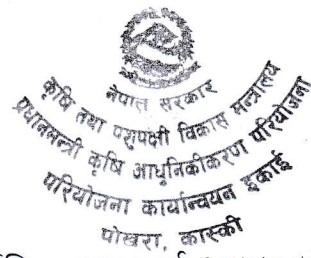 नेपाल सरकार
कृषि तथा पशुपक्षी विकास मन्त्रालय
प्रधानमन्त्री कृषि आधुनिकीकरण परियोजना
परियोजना कार्यान्वयन इकाई
पोखरा, कास्की